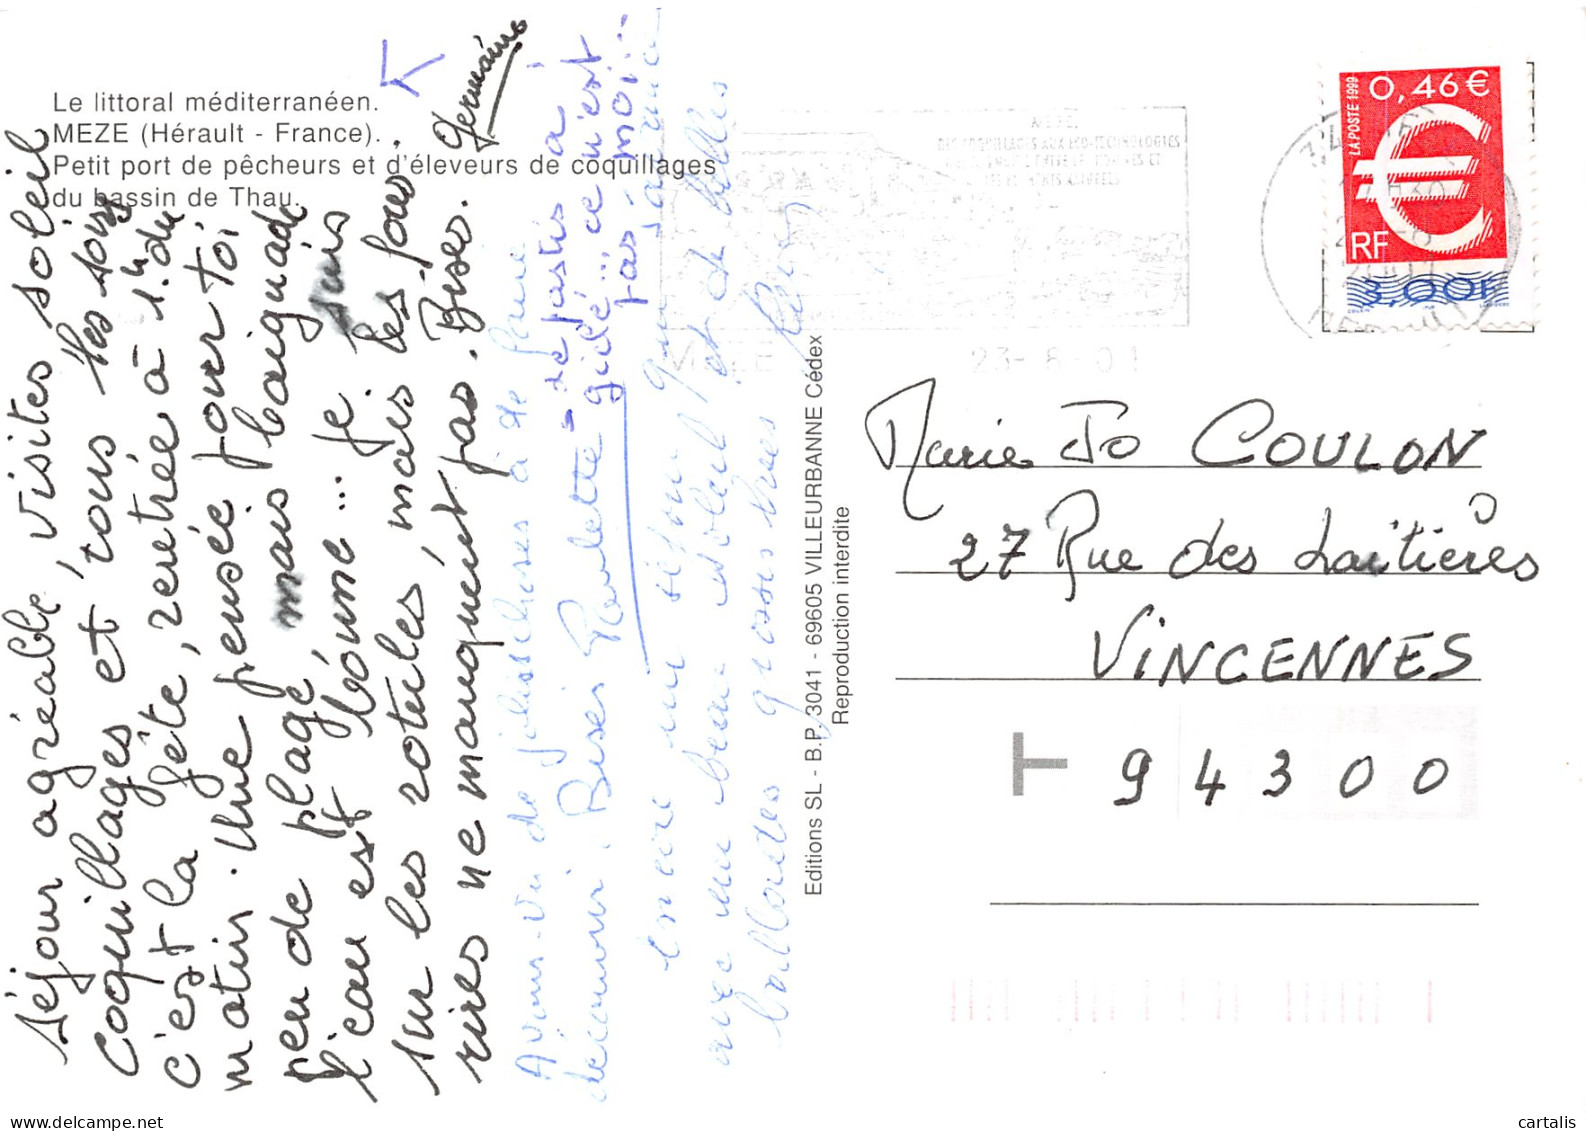 Le littoral méditerranéen.
MEZE (Hérault - France).
Petit port de pêcheurs et d'éleveurs de coquillages
du bassin de Thau.
Séjour agréable, visites soleil
coquillages et tous les soirs
c'est la fête, rentrée à 1.h du
matin. Une pensée pour toi
peu de plage mais baignade
l'eau est bonne... je suis
sur les rotules, mais les fous
rires ne manquent pas. Bises. Germaine
Avons vu de jolies choses à faire
découvrir. Bises Paulette
= le pastis a
giclé... ce n'est
pas moi...
encore une
avec un beau soleil et de belles
ballades grosses bises
Editions SL - B.P. 3041 - 69605 VILLEURBANNE Cédex
Reproduction interdite
LA POSTE 1999
0,46 €
RF
3,00F
MEZE 23-8-01
Marie Jo COULON
27 Rue des Laitières
VINCENNES
T 94300
www.delcampe.net
cartalis